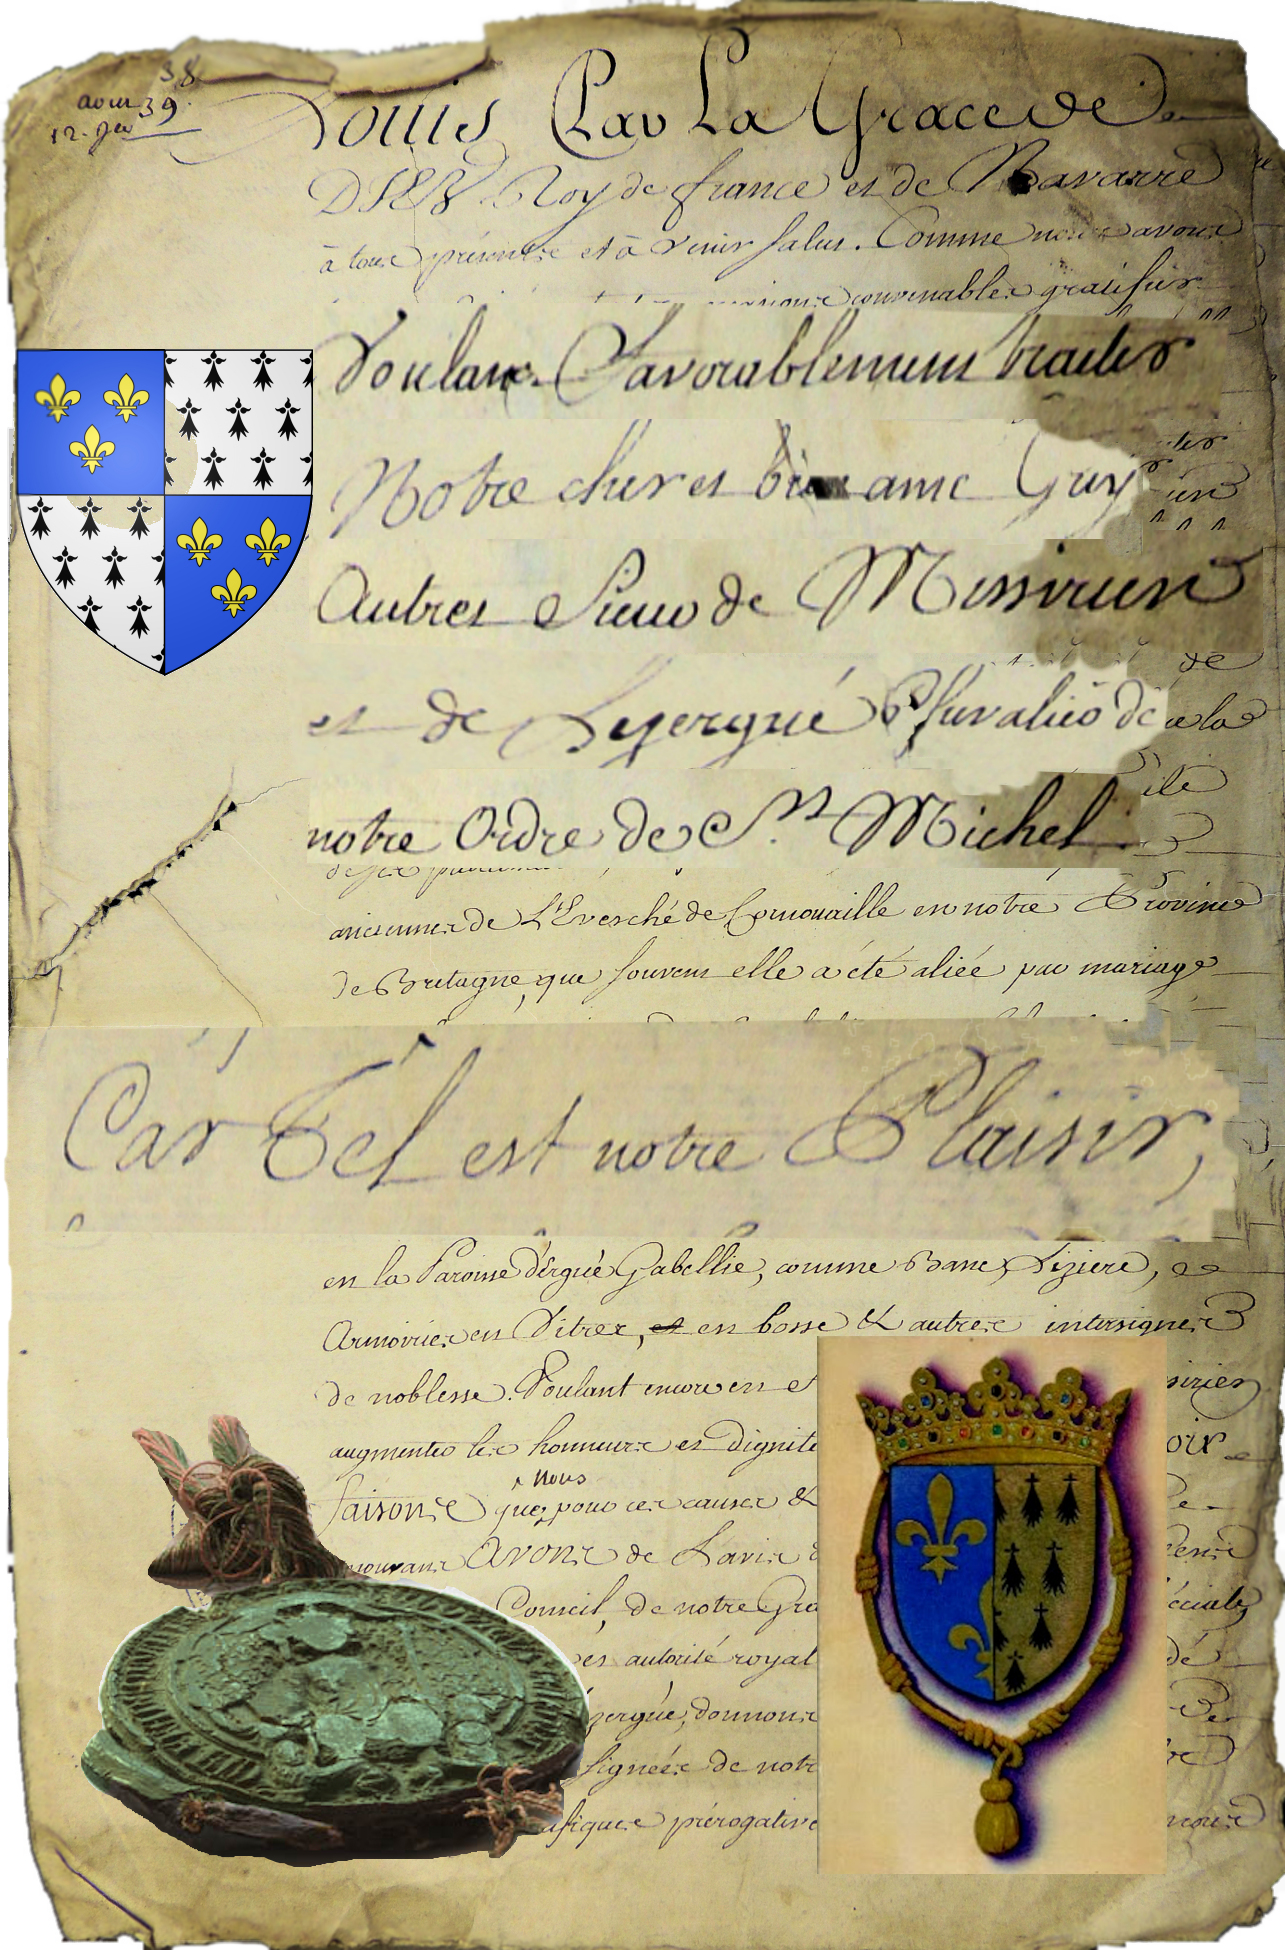 38
avur 39.
12. Jer
Louis Par La Grace de
DIEU Roy de france et de Navarre
à tous présents et à venir salut. Comme nous avons
convenables gratifier
Voulant Favorablement traiter
Notre cher et bien amé Guy
Autret Sieur de Missirien
et de Lezergué Chevalier de
notre Ordre de St. Michel
ancienne de L'Evesché de Cornouaille en notre Province
de Bretagne, que souvent elle a été aliée par mariage
Car Tel est notre Plaisir,
en la Paroisse d'Ergué Gabellic, comme Banc, Lizière,
Armoiries en Vitres, et en bosse & autres intersignes
de noblesse. Voulant encore en
augmenter les honneurs et dignité
nous
faisons que, pour ces causes &
mouvans avons de Lavis
Conseil, de notre Gra
autorité royal
zergué, donnons
signées de notr
prérogative